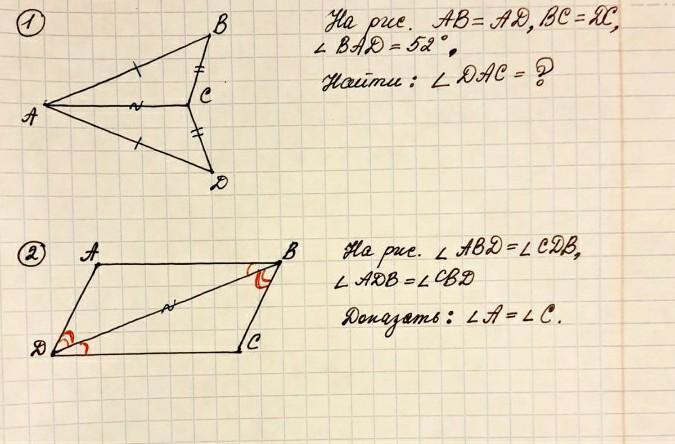 1
На рис. AB = AD, BC = DC,
∠ BAD = 52°,
Найти: ∠ DAC = ?
B
A
C
D
2
На рис. ∠ ABD = ∠ CDB,
∠ ADB = ∠ CBD
Доказать: ∠ A = ∠ C.
A
B
D
C